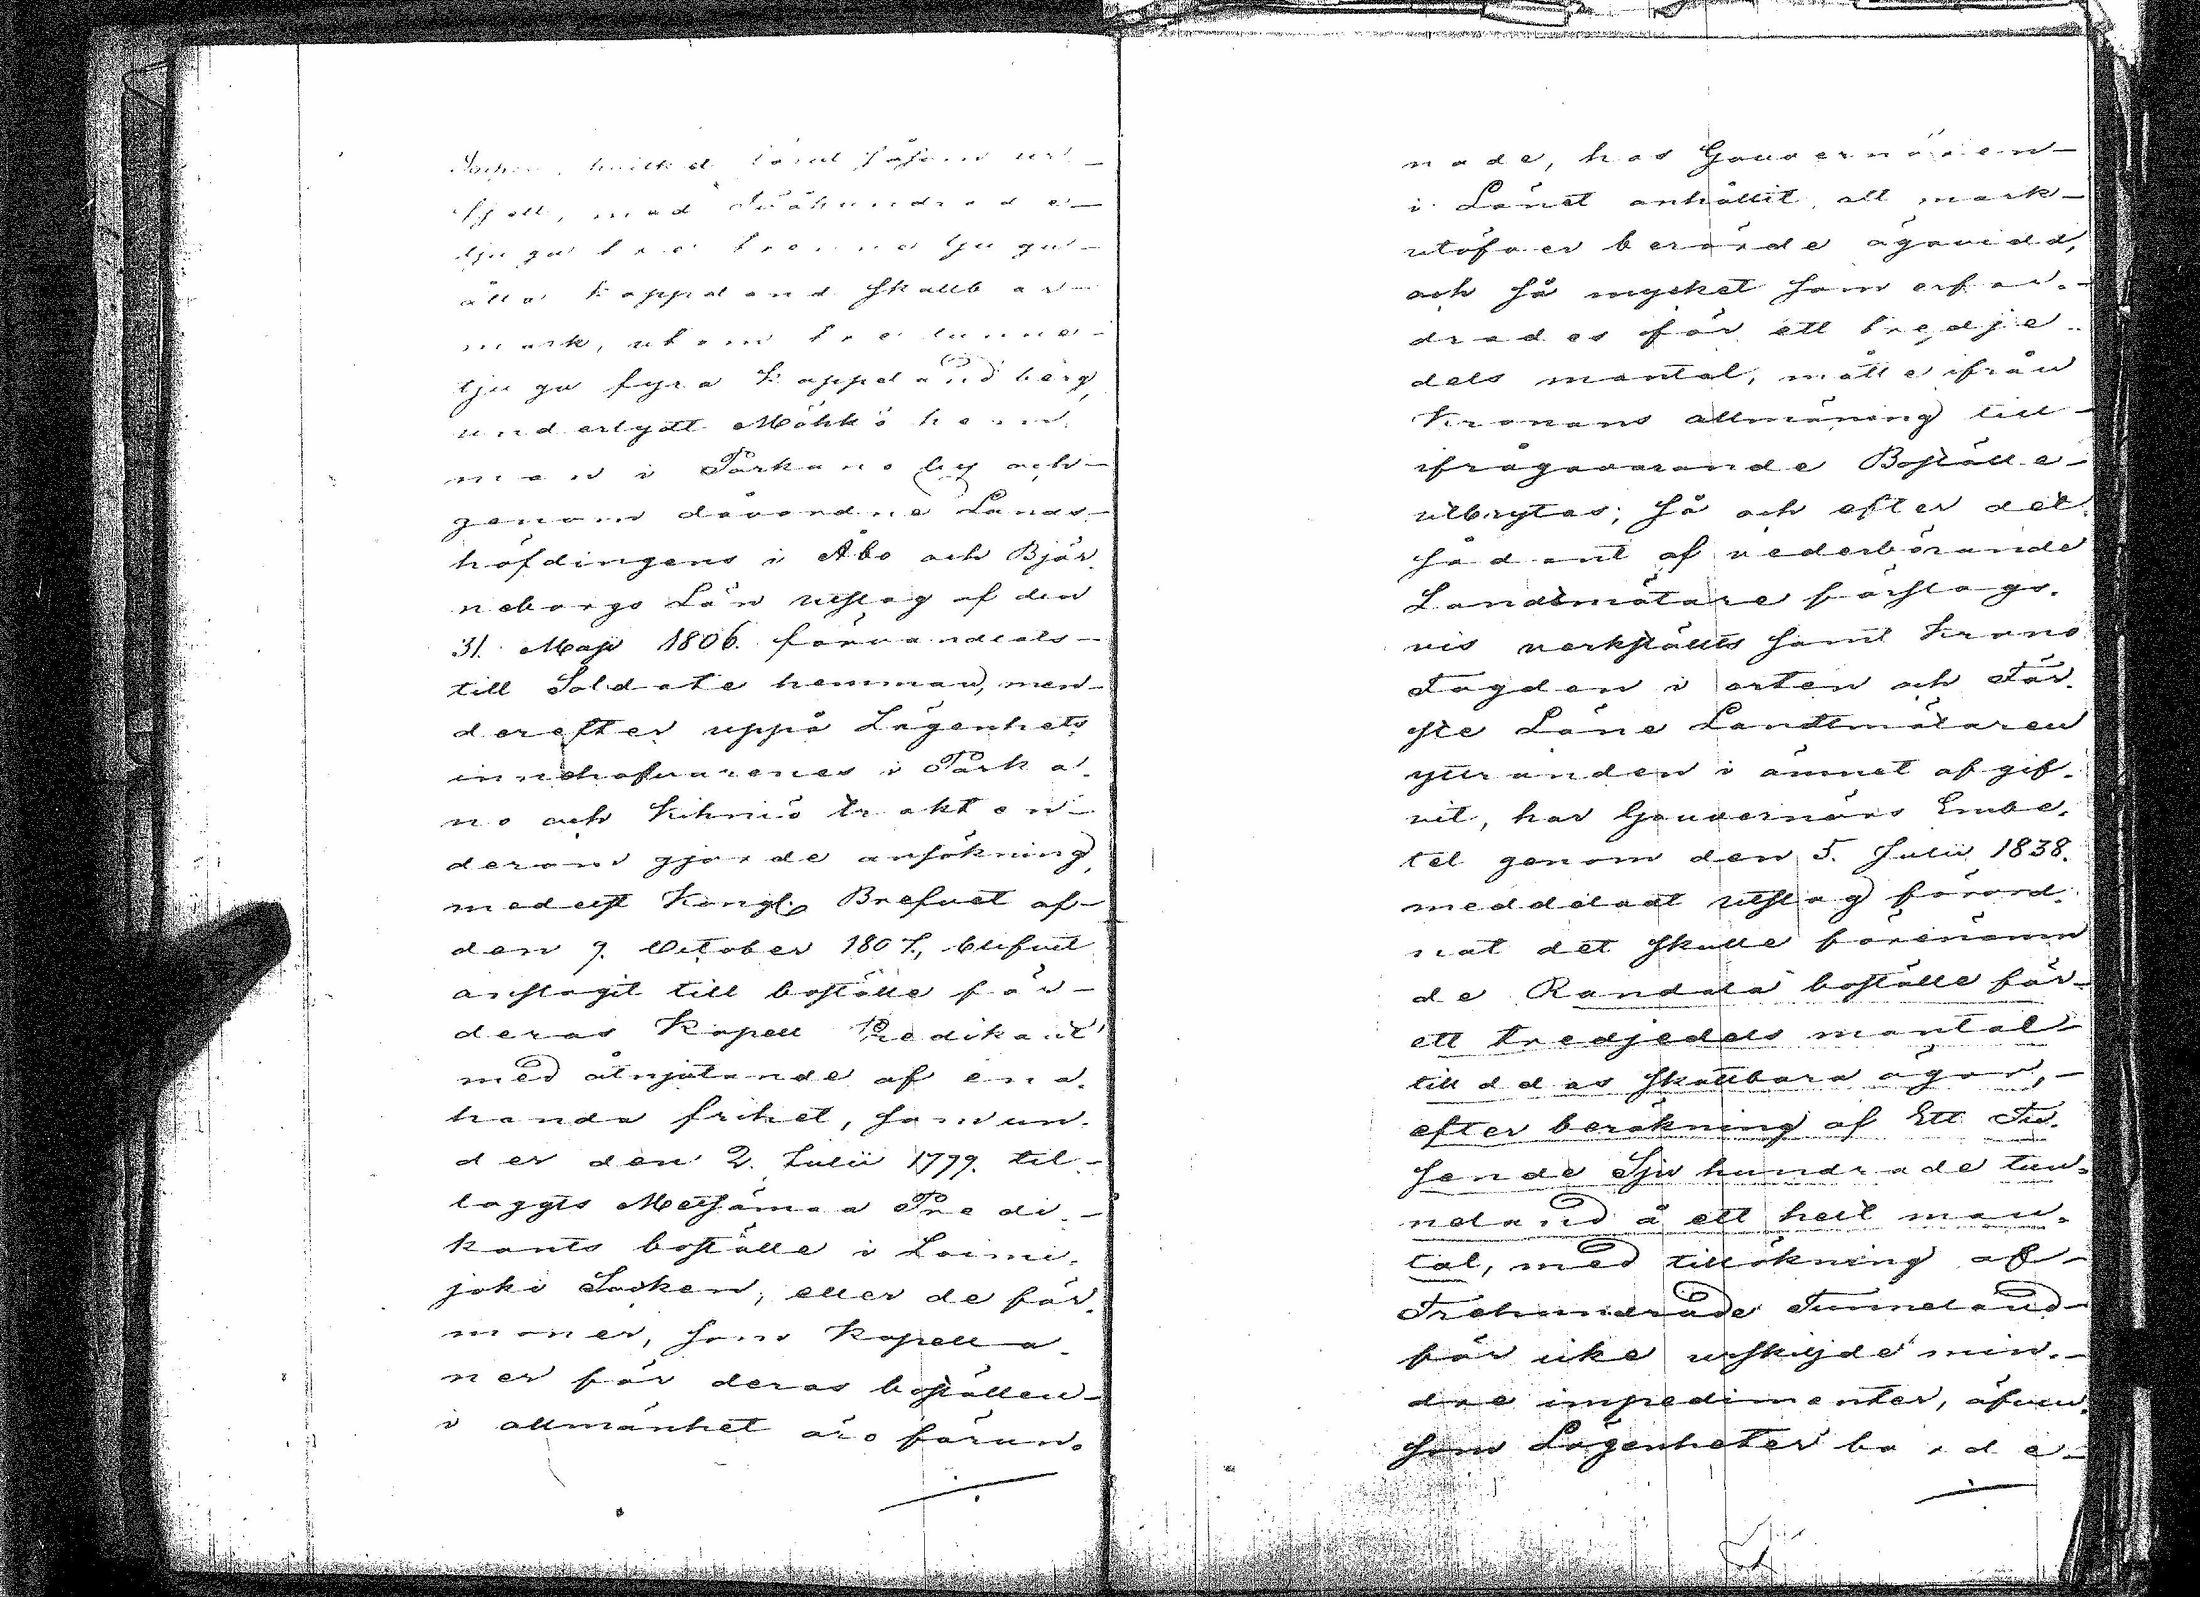 Socken, hvilket
med Tvåhundrade
tjugu tre tjugu
åtta Kappeland skattbar
mark, utom tre tunne
tjugu fyra Kappeland berg,
underlydt Möhkö hem
man i Parkano by och
genom dåvarande Lands
höfdingens i Åbo och Björ
neborgs Län utslag af den
31. Maji 1806. förvandlats
till Soldate hemman, men
derefter uppå Lägenhets
innehafvarenes i Parka
no och Kihniö trakten
derom gjorde ansökning,
medelst Kongl. Brefvet af
den 9. October 1807, blifvit
anslagit till boställe för
deras Kapell Predikant
med åtnjutande af ena
handa frihet, som un
der den 2. Julii 1779. til
laggts Metsämaa Predi
kants boställe i Loimi
joki Socken, eller de för
moner, som Kapella
ner för deras boställen
i allmänhet äro förun
nade, hos Gouvernören
i Länet anhållit, att mark
utöfver berörde ägovidd,
och så mycket som erfor
drades för ett tredje
dels mantal, måtte ifrån
Kronans allmäning till
ifrågavarande Boställe
utbrytas; så och efter det
sådant af vederbörande
Landtmätare förslags
vis verkställts samt Krono
Fogden i orten och För
ste Läne Landtmätaren
yttranden i ämnet afgif
vit, har Gouvernörs Embe
tet genom den 5. Julii 1838.
meddeladt utslag förord
nat det skulle förenämn
de Randala boställe för
ett tredjedels mantal
tilldelas skattbara ägor,
efter beräkning af Ett Tu
sende Sju hundrade tun
neland å ett helt man
tal, med tillökning af
Trehundrade Tunneland
för icke urskiljde min
dre impedimenter, äfven
som Lägenheten borde